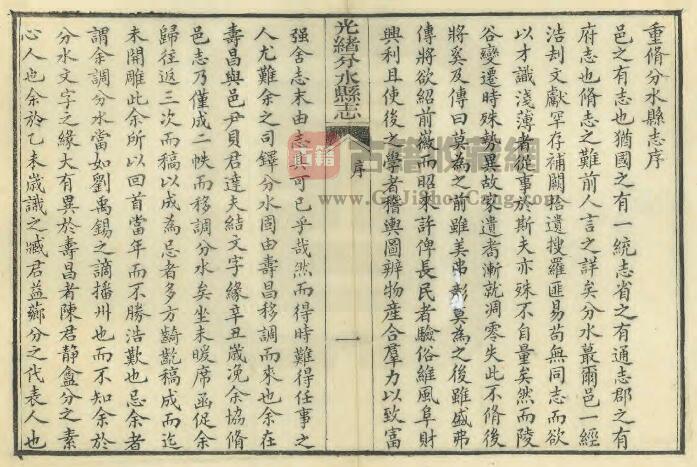 重脩分水縣志序
邑之有志也猶國之有一統志省之有通志郡之有
府志也脩志之難前人言之詳矣分水蕞爾邑一經
浩刦文獻罕存補闕拾遺搜羅匪易苟無同志而欲
以才識淺薄者從事於斯夫亦殊不自量矣然而陵
谷變遷時殊勢異故家遺耈漸就凋零失此不脩後
將奚及傳曰莫為之前雖美弗彰莫為之後雖盛弗
傳將欲紹前徽而昭來許俾長民者驗俗維風阜財
興利且使後之學者稽輿圖辨物產合羣力以致富
光緒分水縣志
序
一
强舍志末由志其可已乎哉然而得時難得任事之
人尤難余之司鐸分水固由壽昌移調而來也余在
壽昌與邑尹貝君達夫結文字緣辛丑歲浼余協脩
邑志乃僅成二帙而移調分水矣坐未暖席函促余
歸往返三次而稿以成為忌者多方齮齕稿成而迄
未開雕此余所以回首當年而不勝浩歎也忌余者
謂余調分水當如劉禹錫之謫播州也而不知余於
分水文字之緣大有異於壽昌者陳君靜盦分之素
心人也余於乙未歲識之臧君益薌分之代表人也
古籍
古籍收藏网
www.GuJiShouCang.com